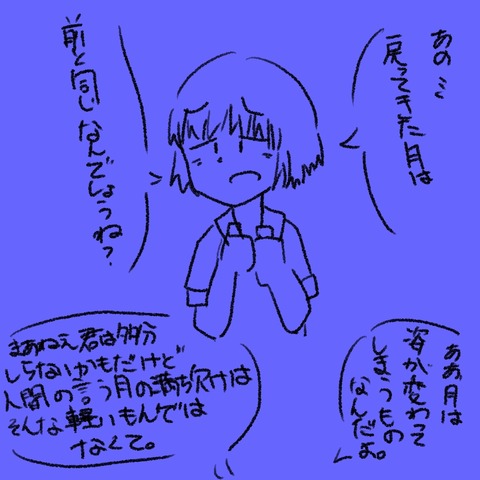 あの…
戻ってきた月は
前と同じなんでしょうね？
ああ月は
姿が変わって
しまうもの
なんだよ。
まあねえ君は多分
しらないかもだけど
人間の言う月の満ち欠けは
そんな軽いもんでは
なくて。